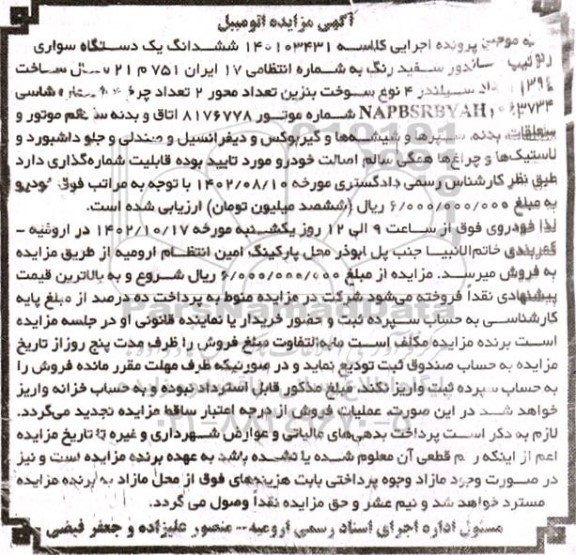 آگهی مزایده اتومبیل
به موجب پرونده اجرایی کلاسه ۱۴۰۱۰۳۴۳۱ ششدانگ یک دستگاه سواری
رنو تیپ ساندور سفید رنگ به شماره انتظامی ۱۷ ایران ۷۵۱ م ۲۱ سال ساخت
۱۳۹۶ تعداد سیلندر ۴ نوع سوخت بنزین تعداد محور ۲ تعداد چرخ ۴ شماره شاسی
NAPBSRBYAH۱۰۶۳۷۳۴ شماره موتور ۸۱۷۶۷۷۸ اتاق و بدنه سالم موتور و
متعلقات، بدنه، سپرها و شیشه‌ها و گیربوکس و دیفرانسیل و صندلی و جلو داشبورد و
لاستیک‌ها و چراغ‌ها همگی سالم اصالت خودرو مورد تایید بوده قابلیت شماره‌گذاری دارد
طبق نظر کارشناس رسمی دادگستری مورخه ۱۴۰۲/۰۸/۱۰ با توجه به مراتب فوق خودرو
به مبلغ ۶/۰۰۰/۰۰۰/۰۰۰ ریال (ششصد میلیون تومان) ارزیابی شده است.
لذا خودروی فوق از ساعت ۹ الی ۱۲ روز یکشنبه مورخه ۱۴۰۲/۱۰/۱۷ در ارومیه –
کمربندی خاتم‌الانبیا جنب پل ابوذر محل پارکینگ امین انتظام ارومیه از طریق مزایده
به فروش میرسد. مزایده از مبلغ ۶/۰۰۰/۰۰۰/۰۰۰ ریال شروع و به بالاترین قیمت
پیشنهادی نقداً فروخته می‌شود شرکت در مزایده منوط به پرداخت ده درصد از مبلغ پایه
کارشناسی به حساب سپرده ثبت و حضور خریدار یا نماینده قانونی او در جلسه مزایده
است برنده مزایده مکلف است مابه‌التفاوت مبلغ فروش را ظرف مدت پنج روز از تاریخ
مزایده به حساب صندوق ثبت تودیع نماید و در صورتیکه ظرف مهلت مقرر مانده فروش را
به حساب سپرده ثبت واریز نکند، مبلغ مذکور قابل استرداد نبوده و به حساب خزانه واریز
خواهد شد در این صورت، عملیات فروش از درجه اعتبار ساقط مزایده تجدید می‌گردد.
لازم به ذکر است پرداخت بدهی‌های مالیاتی و عوارض شهرداری و غیره تا تاریخ مزایده
اعم از اینکه رقم قطعی آن معلوم شده یا نشده باشد به عهده برنده مزایده است و نیز
در صورت وجود مازاد وجوه پرداختی بابت هزینه‌های فوق از محل مازاد به برنده مزایده
مسترد خواهد شد و نیم عشر و حق مزایده نقداً وصول می گردد.
مسئول اداره اجرای اسناد رسمی ارومیه – منصور علیزاده و جعفر فیضی
ParsNamadData
۰۲۱-۸۸۳۴۹۶۷۰-۵